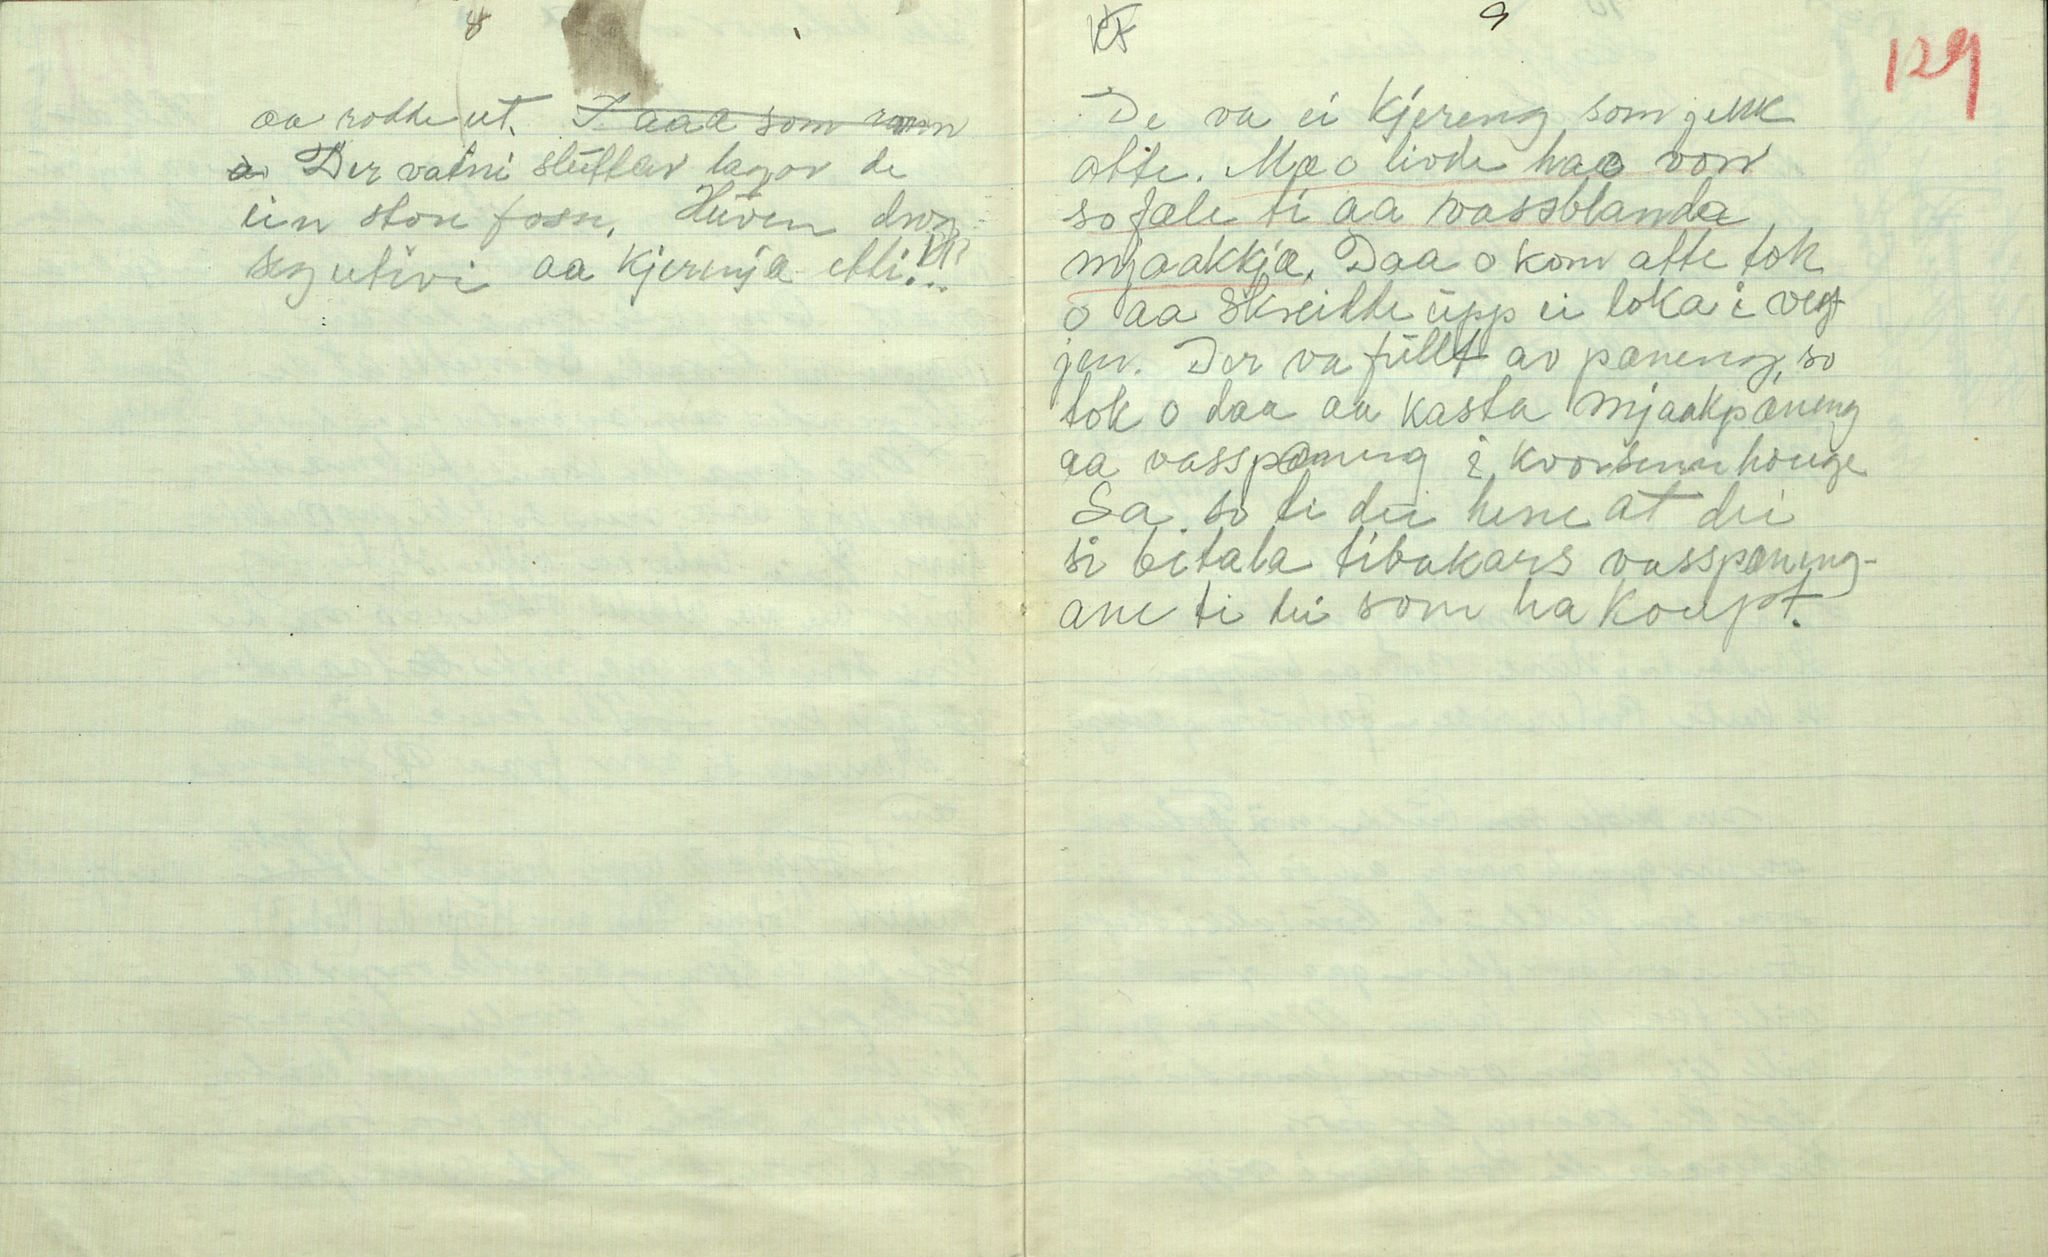 8
aa rodde ut. I aaa som rann
aa Der vatni sluttar lagar de
ein store foss. Hüven drog
seg utivi aa kjeringja etti...
KF
9
129
De va ei kjereng som jekk
atte. Mæ o livde hae o vore
so fale ti aa vassblanda
mjaakkja. Daa o kom atte tok
o aa skreidde üpp ei loka i veg
jen. Der va füllt av pæneng, so
tok o daa aa kasta mjaakpæneng
aa vasspæneng i kvorsinn houge
Sa so ti dei hene at dei
si bitala tibakars vasspæneng-
ane ti dei som ha koupt.